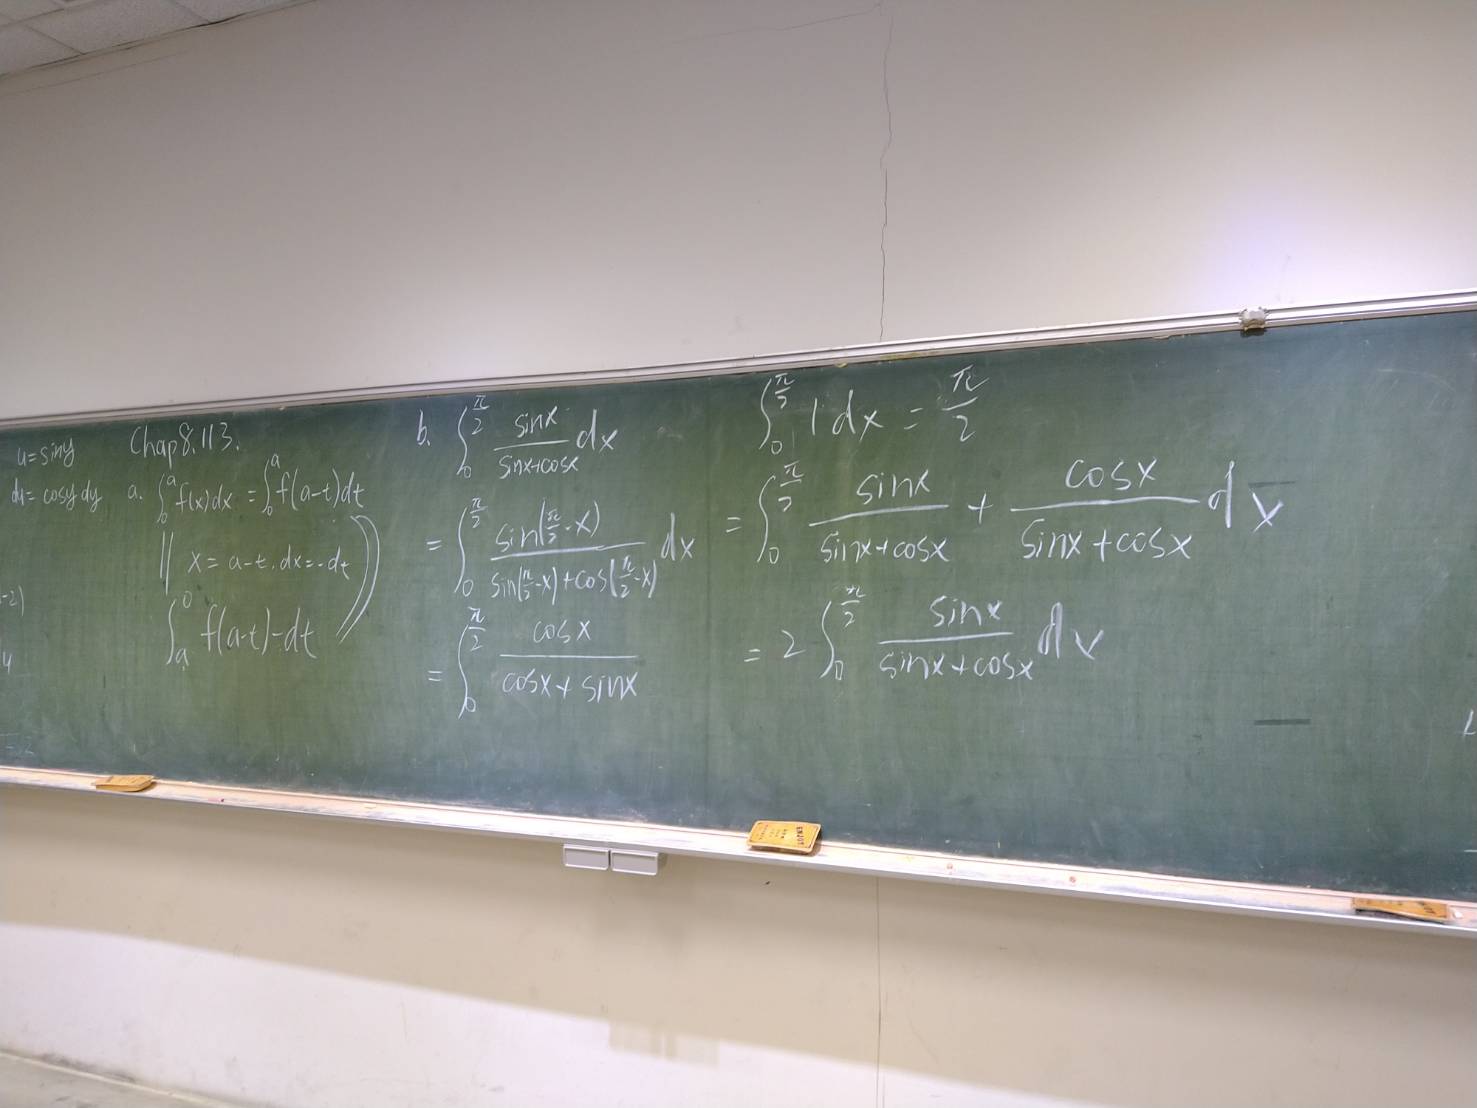 u=siny
du=cosydy
-2)
Chap8.113.
a. ∫₀ᵃ f(x)dx = ∫₀ᵃ f(a-t)dt
x=a-t, dx=-dt
∫ₐ⁰ f(a-t)-dt
b. ∫₀^(π/2) sinx/(sinx+cosx) dx
= ∫₀^(π/2) sin(π/2-x)/(sin(π/2-x)+cos(π/2-x)) dx
= ∫₀^(π/2) cosx/(cosx+sinx)
∫₀^(π/2) 1dx = π/2
= ∫₀^(π/2) sinx/(sinx+cosx) + cosx/(sinx+cosx) dx
= 2∫₀^(π/2) sinx/(sinx+cosx) dx